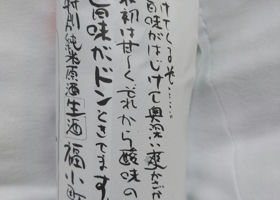 けてくる
旨味がはじけて奥深い豊かさが
最初は甘〜く、それから酸味の
旨味がドンときてます
特別純米原酒生酒 福小町